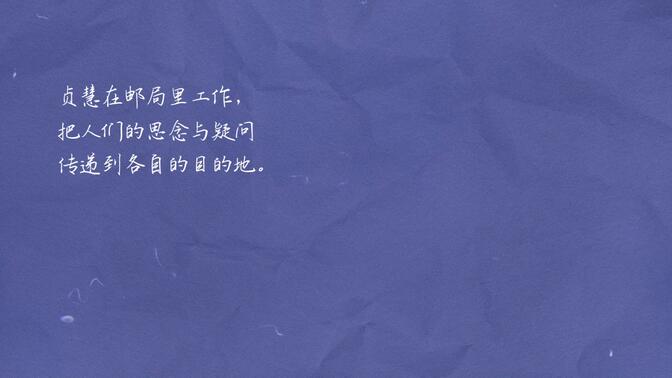 贞慧在邮局里工作，
把人们的思念与疑问
传递到各自的目的地。